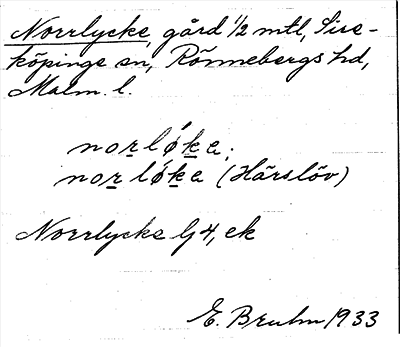 Norrlycke, gård 1/2 mtl, Sire-
köpinge sn, Rönnebergs hd,
Malm. l.
norlǿke;
norlǿke (Härslöv)
Norrlycke Gj 4, ek
E. Bruhn 1933